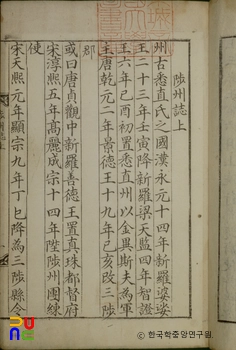 陟州誌上
州古悉直氏之國漢永元十四年新羅婆娑
王二十三年壬寅降新羅梁天監四年智證
王六年乙酉初置悉直州以金異斯夫爲軍
王唐乾元二年景德王十九年己亥改三陟
郡
或曰唐貞觀中新羅善德王置眞珠都督府
宋淳熙五年高麗成宗十四年陞陟州團練
使
宋天熙元年顯宗九年丁巳降爲三陟縣令
ⓒ 한국학중앙연구원